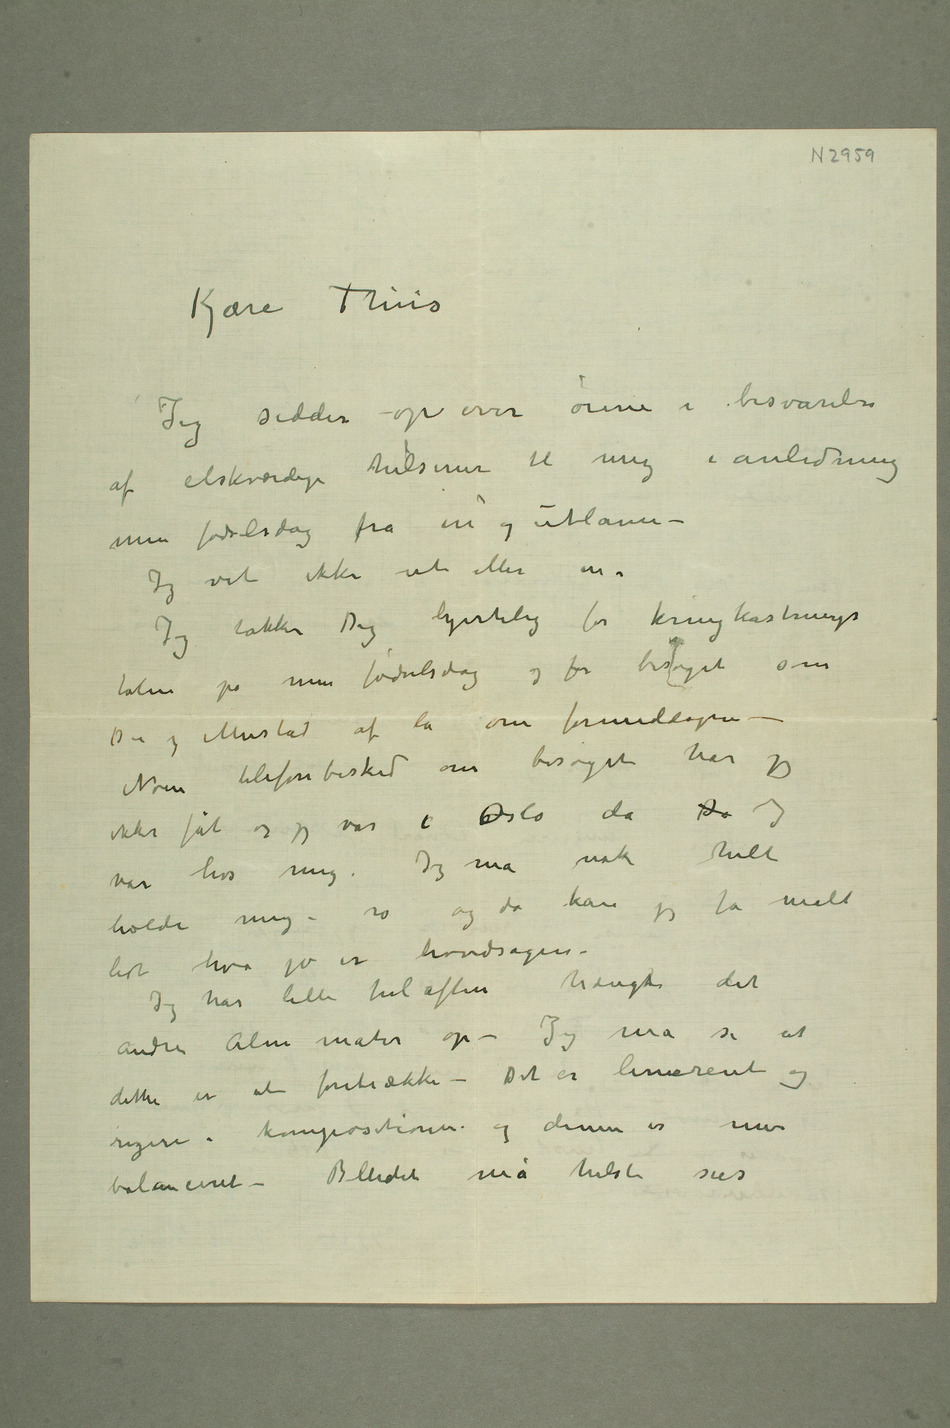 N 2959
Kjære Thiis
Jeg sidder op over ørene i besvarelse
af elskværdige hilsener til mig i anledning
min fødselsdag fra in og utlann –
Jeg vet ikke ut eller in.
Jeg takker Dig hjertelig for kringkastnings
talen på min fødselsdag og for besøget som
Du og Mustad af la om formiddagen –
Noen telefonbesked om besøget har jeg
ikke fåt og jeg var i Oslo da Da I
var hos mig. Jeg må nok helt
holde mig i ro og da kan jeg få malt
lidt hva jo er hovedsagen.
Jeg har lille hængt det
andre Alma mater op – Jeg må si at
dette er at foretrække – Det er lineærent og
rigere i kompositionen og denne er mere
balanceret – Billedet må helst sees